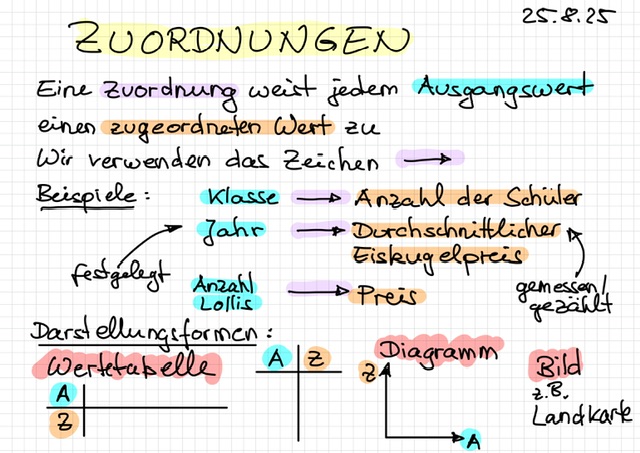 25.8.25
ZUORDNUNGEN
Eine Zuordnung weist jedem Ausgangswert
einen zugeordneten Wert zu
Wir verwenden das Zeichen →
Beispiele: Klasse → Anzahl der Schüler
Jahr → Durchschnittlicher
Eiskugelpreis
festgelegt
gemessen/
gezählt
Anzahl
Lollis → Preis
Darstellungsformen:
Wertetabelle
A
Z
A Z
Diagramm
Z
A
Bild
z.B.
Landkarte